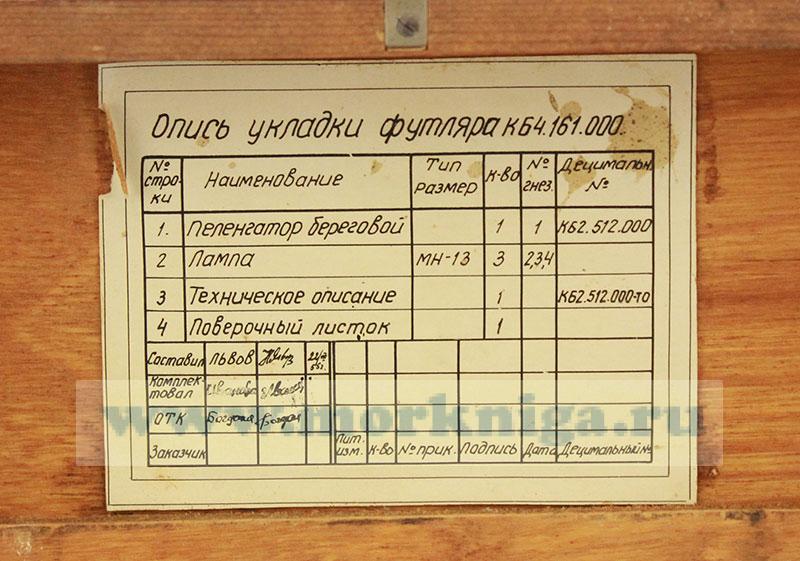 Опись укладки футляра КБ4.161.000.
№ стро-ки Наименование Тип размер к-во № гнез. Децимальн. №
1. Пеленгатор береговой 1 1 КБ2.512.000
2 Лампа МН-13 3 2,3,4
3 Техническое описание 1 КБ2.512.000-ТО
4 Поверочный листок 1
Составил Львов
Комплек-товал
ОТК
Заказчик Лит. изм. к-во № прик. Падпись Дата Децимальный №
www.morkniga.ru